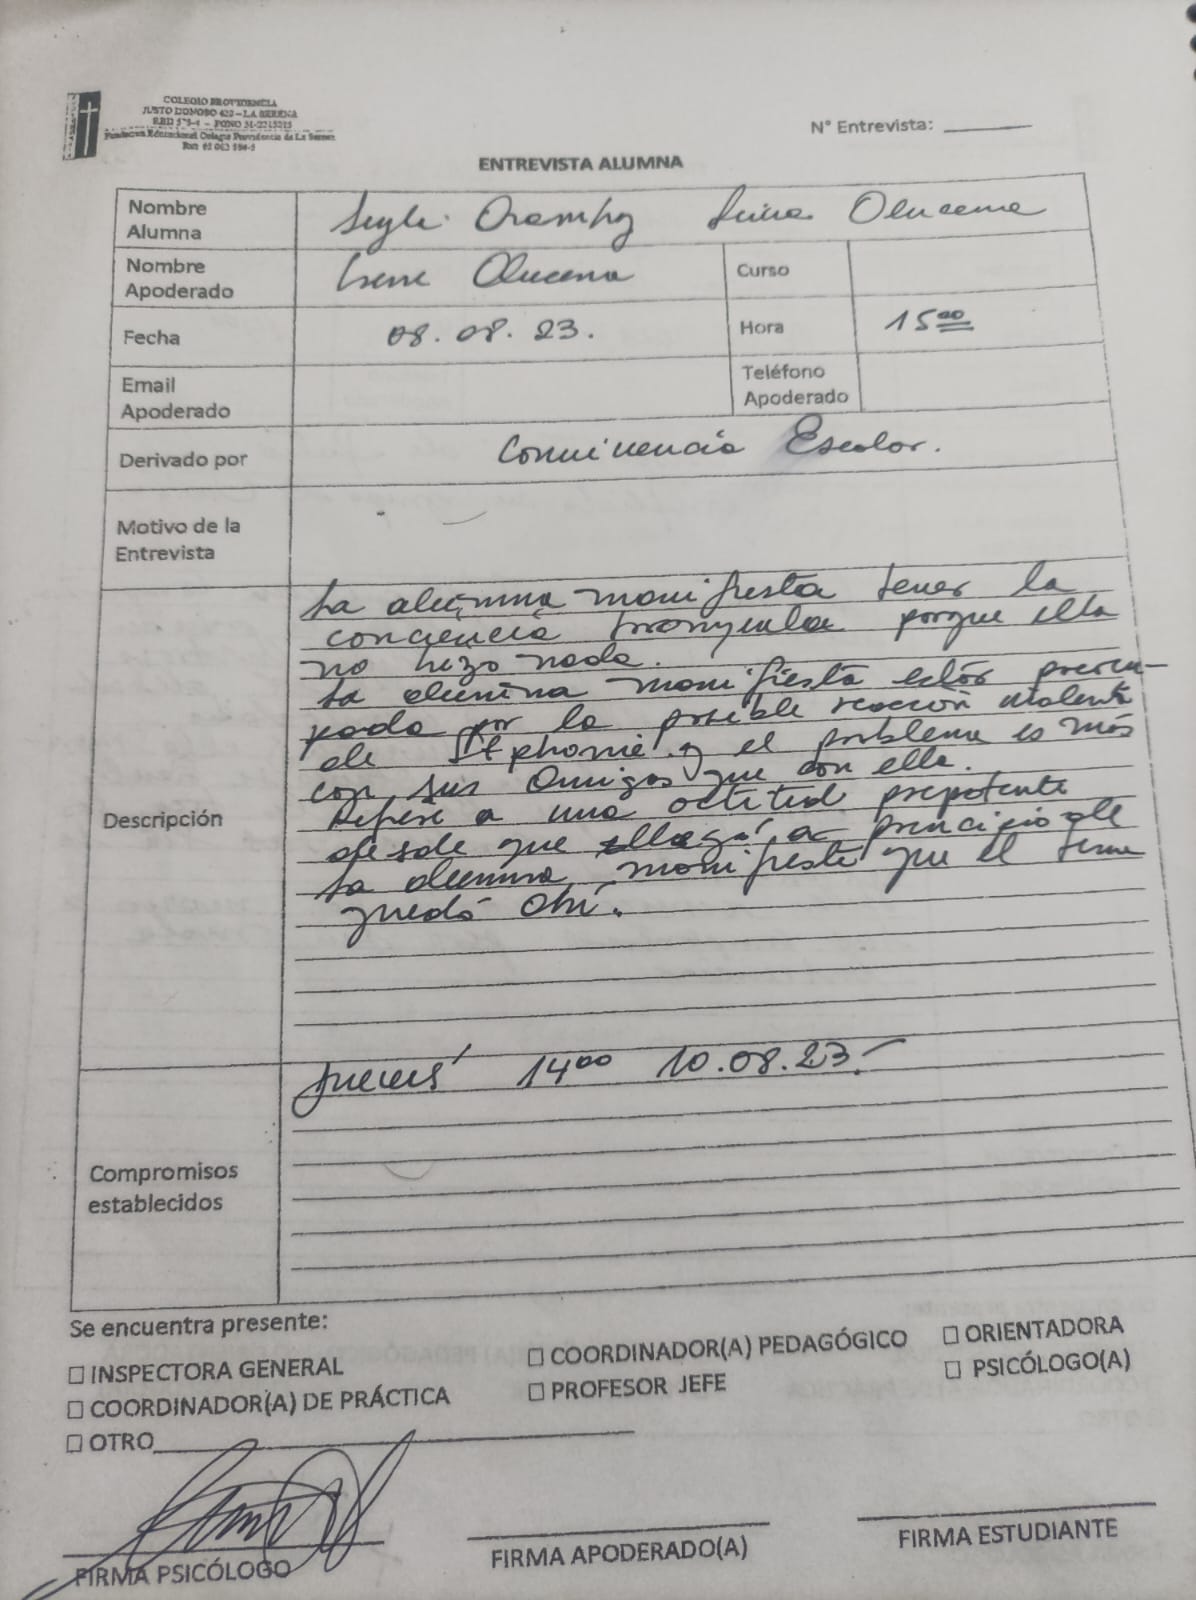 COLEGIO PROVIDENCIA
JUSTO DONOSO 420 – LA SERENA
Fundación Educacional Colegio Providencia de La Serena
N° Entrevista:
ENTREVISTA ALUMNA
Nombre Alumna
Nombre Apoderado
Curso
Fecha 08.08.23.
Hora 15⁰⁰
Email Apoderado
Teléfono Apoderado
Derivado por Convivencia Escolar.
Motivo de la Entrevista
Descripción
La alumna manifiesta tener la
conciencia tranquila porque ella
no hizo nada.
La alumna manifiesta estar preocu-
pada por la posible reacción violenta
de y el problema es más
con sus amigas que con ella.
Refiere a una actitud prepotente
desde que llegó a principio de
La alumna manifieste que el tema
quedó ahí.
Compromisos establecidos
Jueves 14⁰⁰ 10.08.23.-
Se encuentra presente:
☐ INSPECTORA GENERAL ☐ COORDINADOR(A) PEDAGÓGICO ☐ ORIENTADORA
☐ COORDINADOR(A) DE PRÁCTICA ☐ PROFESOR JEFE ☐ PSICÓLOGO(A)
☐ OTRO
FIRMA PSICÓLOGO FIRMA APODERADO(A) FIRMA ESTUDIANTE